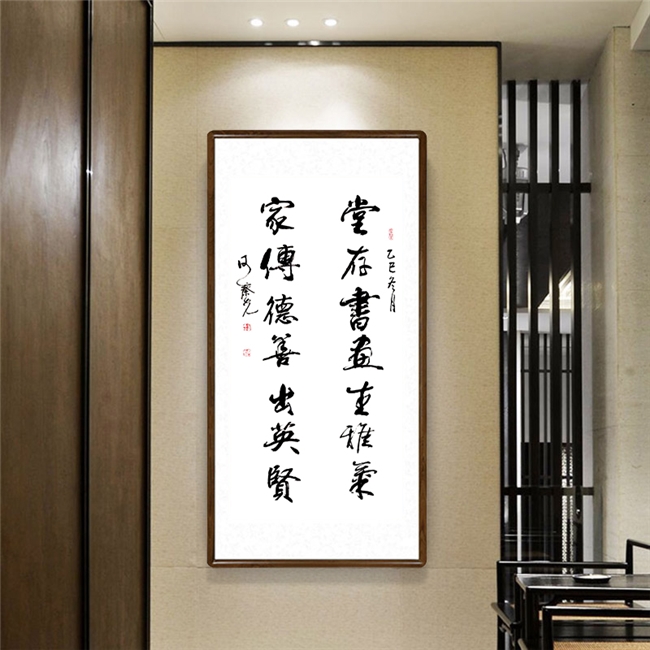 乙巳冬月
堂存書畫生雅氣
家傳德善出英賢